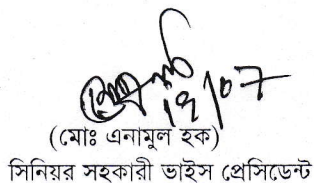 ১৭/০৭
(মোঃ এনামুল হক)
সিনিয়র সহকারী ভাইস প্রেসিডেন্ট